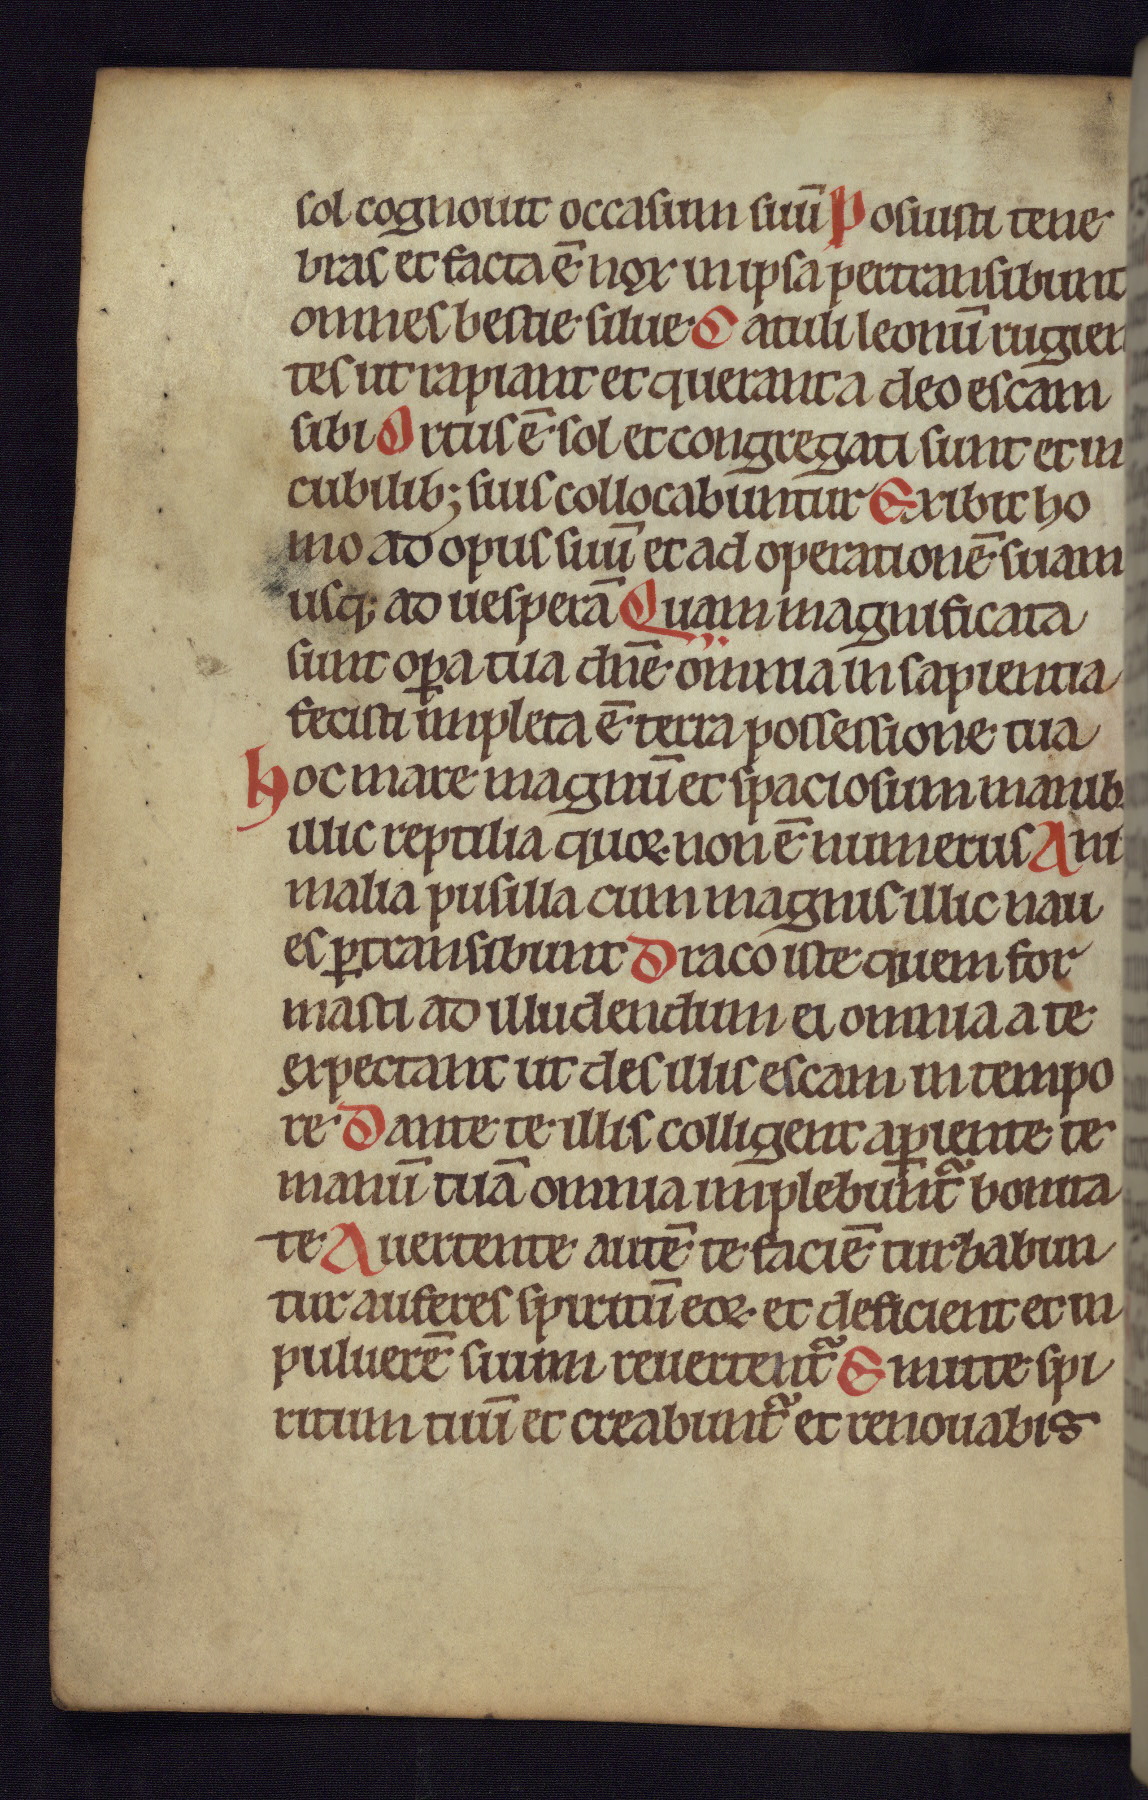 sol cognouit occasum suū Posuisti tene
bras et facta ē nox in ipsa pertransibunt
omnes bestie silue Catuli leonū rugien
tes ut rapiant et querant a deo escam
sibi Ortus ē sol et congregati sunt et in
cubilib; suis collocabuntur Exibit ho
mo ad opus suū et ad operationē suam
usq; ad uesperā Quam magnificata
sunt oꝑa tua dn̄e omnia in sapientia
fecisti impleta ē terra possessione tua
hoc mare magnū et spaciosum manib;
illic reptilia quoꝝ non ē numerus Ani
malia pusilla cum magnis illic nau
es ꝑtransibunt Draco iste quem for
masti ad illudendum ei omnia a te
expectant ut des illis escam in tempo
re Dante te illis colligent aꝑiente te
manū tuā omnia implebunt᷑ bonita
te Auertente autē te faciē turbabun
tur auferes spiritū eoꝝ et deficient et in
puluerē suum reuertent᷑ Emitte spi
ritum tuū et creabunt᷑ et renouabis